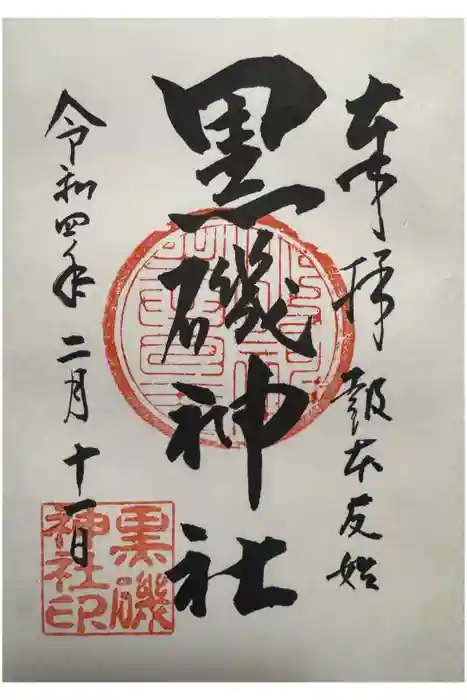 奉拝 報本反始
黒磯神社
令和四年 二月 十一日
黒磯
神社印